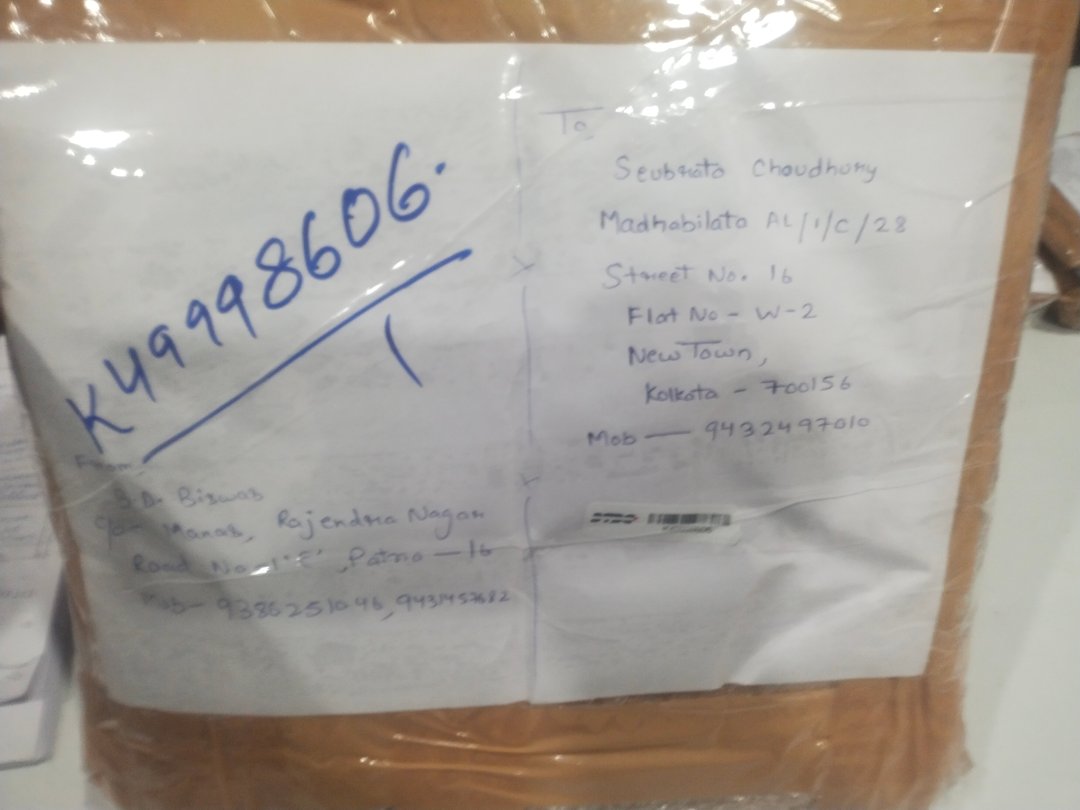 K49998606.
1
From -
S.D. Biswas
C/o - Manas, Rajendra Nagar
Road No - 1 'E', Patna - 16
Mob - 9386251046, 9431457682
To
Seubrata Choudhury
Madhabilata AL/1/C/28
Street No. 16
Flat No - W-2
New Town,
Kolkata - 700156
Mob - 9432497010
DTDC